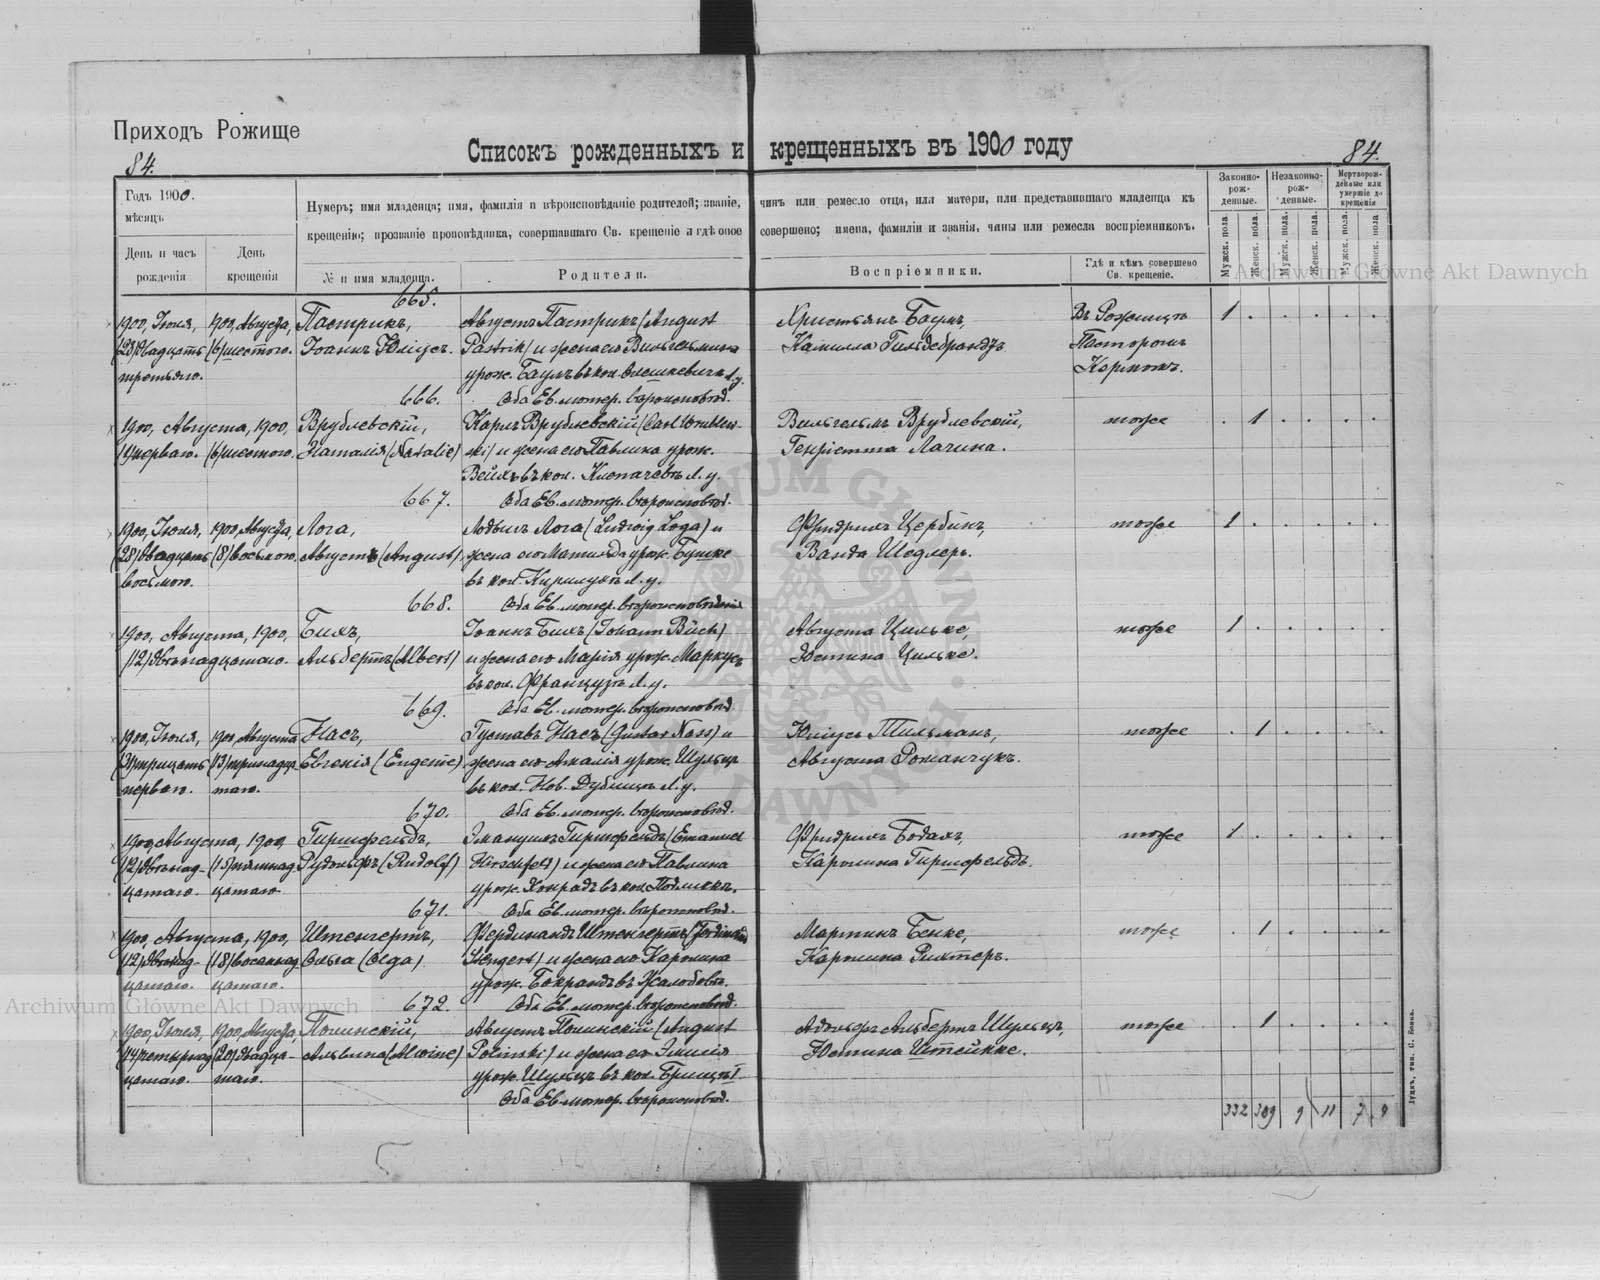 Приходъ Рожище
84.
Списокъ рожденныхъ и крещенныхъ въ 1900 году
84.
Годъ 1900.
мѣсяцъ
День и часъ рожденія
День крещенія
Нумеръ; имя младенца; имя, фамилія и вѣроисповѣданіе родителей; званіе, чинъ или ремесло отца, или матери, или представившаго младенца къ
крещенію; прозваніе проповѣдника, совершавшаго Св. крещеніе и гдѣ оное совершено; имена, фамиліи и званія, чины или ремесла воспріемниковъ.
№ и имя младенца.
Родители.
Воспріемники.
Гдѣ и кѣмъ совершено Св. крещеніе.
Законно-рож-денные.
Незаконно-рож-денные.
Мертворож-денные или умершіе до крещенія
Мужск. пола.
Женск. пола.
Мужск. пола.
Женск. пола.
Мужск. пола.
Женск. пола.
665.
1900, Іюля, 1900, Августа, Пастрикъ, Августъ Пастрикъ (August Христьянъ Баумъ, Въ Рожищѣ 1
(23) двадцать (6) шестого. Іоаннъ Юліусъ. Pastrik) и жена его Вильгельмина Камилла Гильдебрандъ Пасторомъ
третьяго. урож. Баумъ въ кол. Олешкевичъ Л.у.
666. Оба Ев. лютер. вѣроисповѣд.
1900, Августа, 1900, Врублевскій, Карлъ Врублевскій (Carl Wrublew- Вильгельмъ Врублевскій, тоже 1
(1) перваго. (6) шестого. Наталія (Natalie) ski) и жена его Павлина урож. Генріетта Лачина.
въ кол. Клепачевъ Л. у.
667. Оба Ев. лютер. вѣроисповѣд.
1900, Іюля, 1900, Августа, Лога, Лодвигъ Лога (Ludwig Loga) и Фридрихъ Цербинъ, тоже 1
(28) двадцать (8) восьмого. Августъ (August). жена его Матильда урож. Бушке Ванда Шедлеръ.
восьмого. въ кол. Л. у.
668. Оба Ев. лютер. вѣроисповѣданія
1900, Августа, 1900, Бихъ, Іоаннъ Бихъ (Johann Büch) Августа Цильке, тоже 1
(12) двѣнадцатаго. Альбертъ (Albert) и жена его Марія урож. Маркусъ Юстина Цильке.
въ кол. Французъ Л. у.
669. Оба Ев. лютер. вѣроисповѣд.
1900, Іюля, 1900, Августа Насъ, Густавъ Насъ (Gustav Nass) и Юліусъ Тильманъ, тоже 1
(31) тридцать (13) тринадца- Евгенія (Eugenie) жена его Амалія урож. Шульцъ Августа Романчукъ.
перваго. таго. въ кол. Нов. Дубищѣ Л. у.
670. Оба Ев. лютер. вѣроисповѣд.
1900, Августа, 1900, Гиршфельдъ, Эмануилъ Гиршфельдъ (Emanuel Фридрихъ Бодахъ, тоже 1
(12) двѣнад- (15) пятнад- Рудольфъ (Rudolf) Hirschfeld) и жена его Павлина Каролина Гиршфельдъ.
цатаго. цатаго урож. Конрадъ въ кол.
671. Оба Ев. лютер. вѣроисповѣд.
1900, Августа, 1900, Штенгертъ, Фердинандъ Штенгертъ (Ferdinand Мартинъ Бенке, тоже 1
(12) двѣнад- (18) восемнад- Ольга (Olga) Stengert) и жена его Каролина Каролина Рихтеръ.
цатаго. цатаго. урож. въ Жалобовъ.
672. Оба Ев. лютер. вѣроисповѣд.
1900, Іюля, 1900, Августа, Полинскій, Августъ Полинскій (August Адольфъ Альбертъ Шульцъ, тоже 1
(14) четырнад- (20) двадца- Альвина (Alwine) Polinski) и жена его Эмилія Юстина Штейнке.
цатаго. таго. урож. Шульцъ въ кол. Брищъ I
Оба Ев. лютер. вѣроисповѣд.
332 309 9 11 7 9
Луцкъ, тип. С. Бонка.
Archiwum Główne Akt Dawnych
Archiwum Główne Akt Dawnych